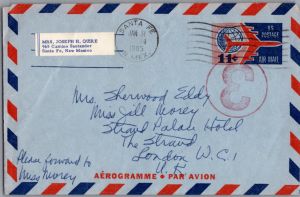 MRS. JOSEPH H. QUIRE
960 Camino Santander
Santa Fe, New Mexico
SANTA FE
JAN
1965
N. MEX.
U.S.
POSTAGE
11¢
AIR MAIL
3
Mrs. Sherwood Eddy
Miss Jill Morey
Strand Palace Hotel
The Strand
London W.C.1
U.K.
Please forward to
Miss Morey
AÉROGRAMME • PAR AVION